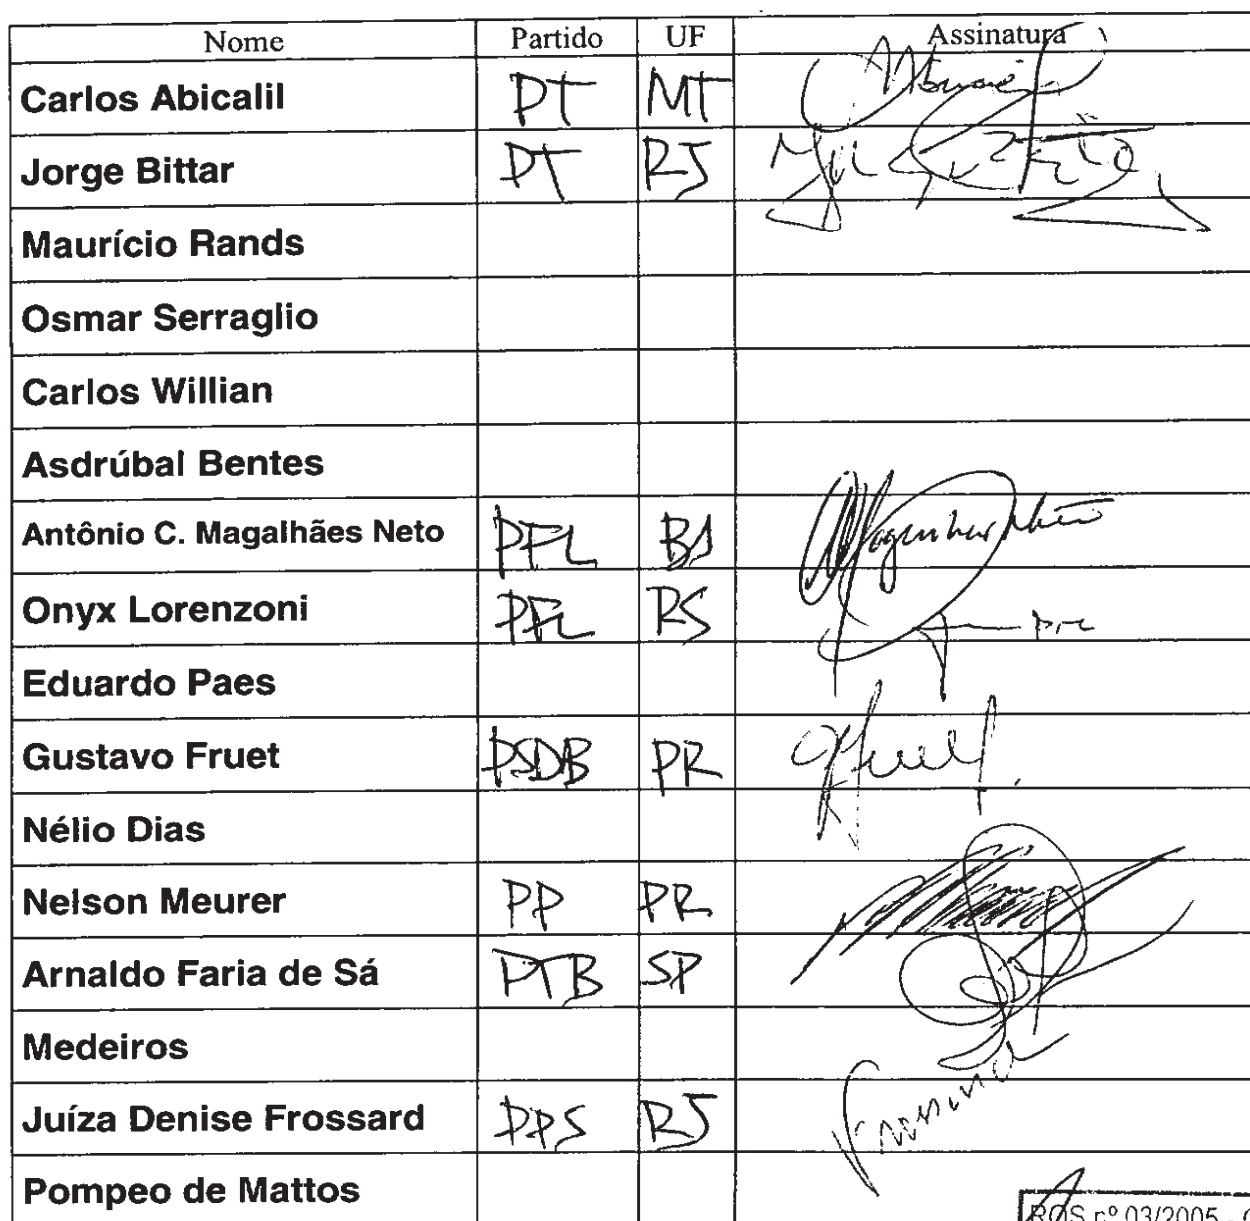 Nome Partido UF Assinatura
Carlos Abicalil PT MT
Jorge Bittar PT RJ
Maurício Rands
Osmar Serraglio
Carlos Willian
Asdrúbal Bentes
Antônio C. Magalhães Neto PFL BA
Onyx Lorenzoni PFL RS
Eduardo Paes
Gustavo Fruet PSDB PR GFruet
Nélio Dias
Nelson Meurer PP PR
Arnaldo Faria de Sá PTB SP
Medeiros
Juíza Denise Frossard PPS RJ
Pompeo de Mattos
RQS nº 03/2005 - C